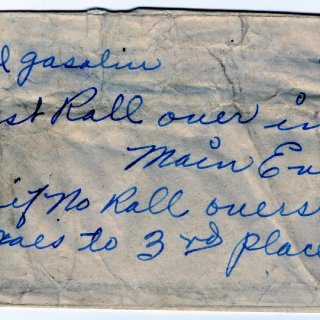 l gasolin
st Roll over in
Main Ev
if No Roll overs
goes to 3rd place